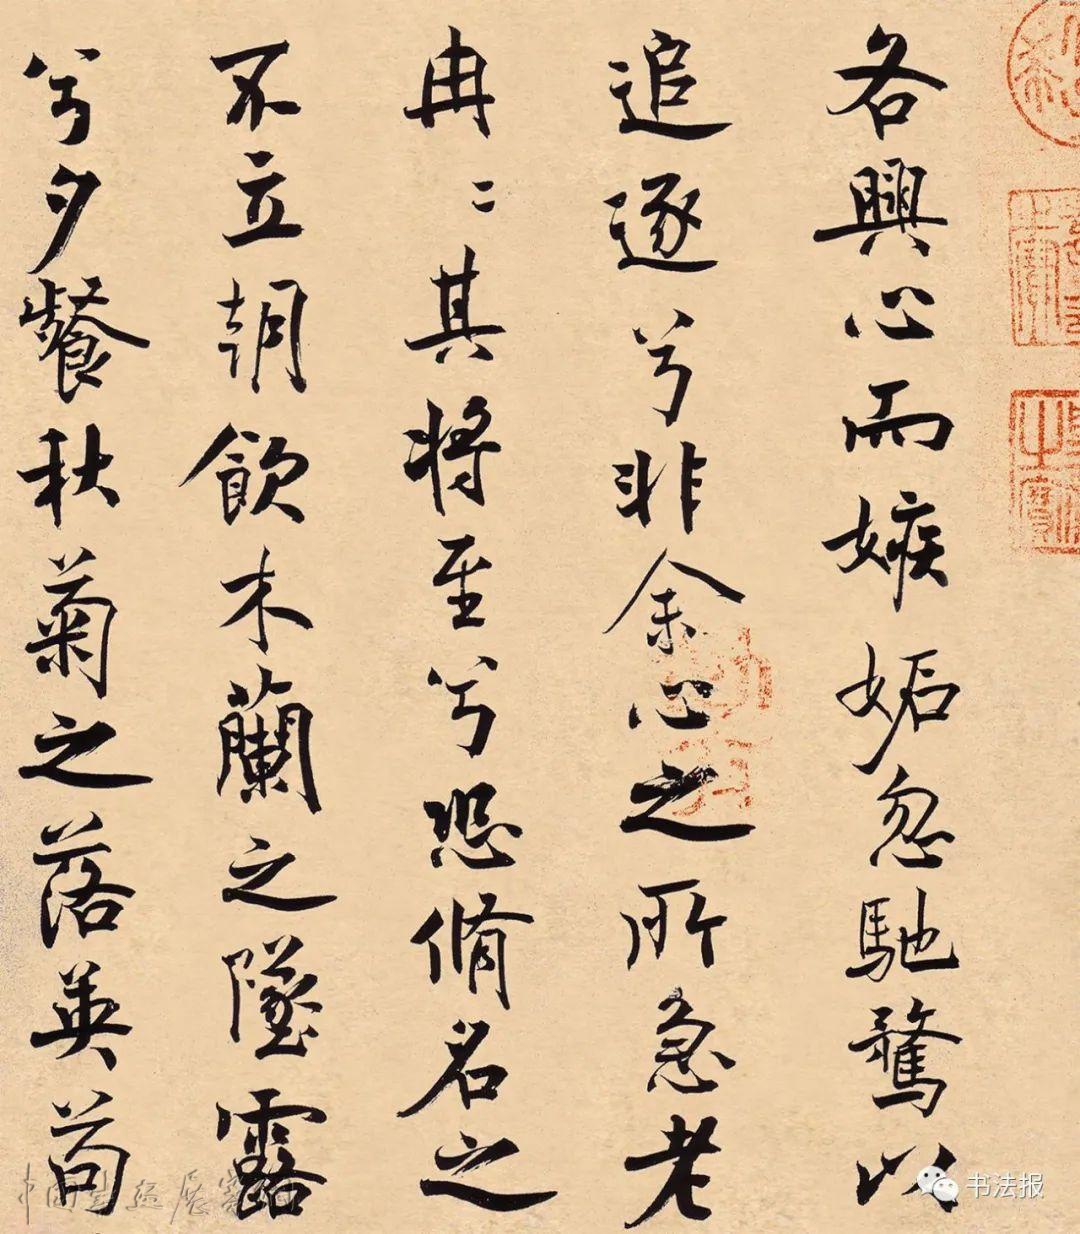 各興心而嫉妬忽馳騖以
追逐兮非余心之所急老
冉〻其将至兮恐脩名之
不立朝飲木蘭之墜露
兮夕餐秋菊之落英苟
书法报